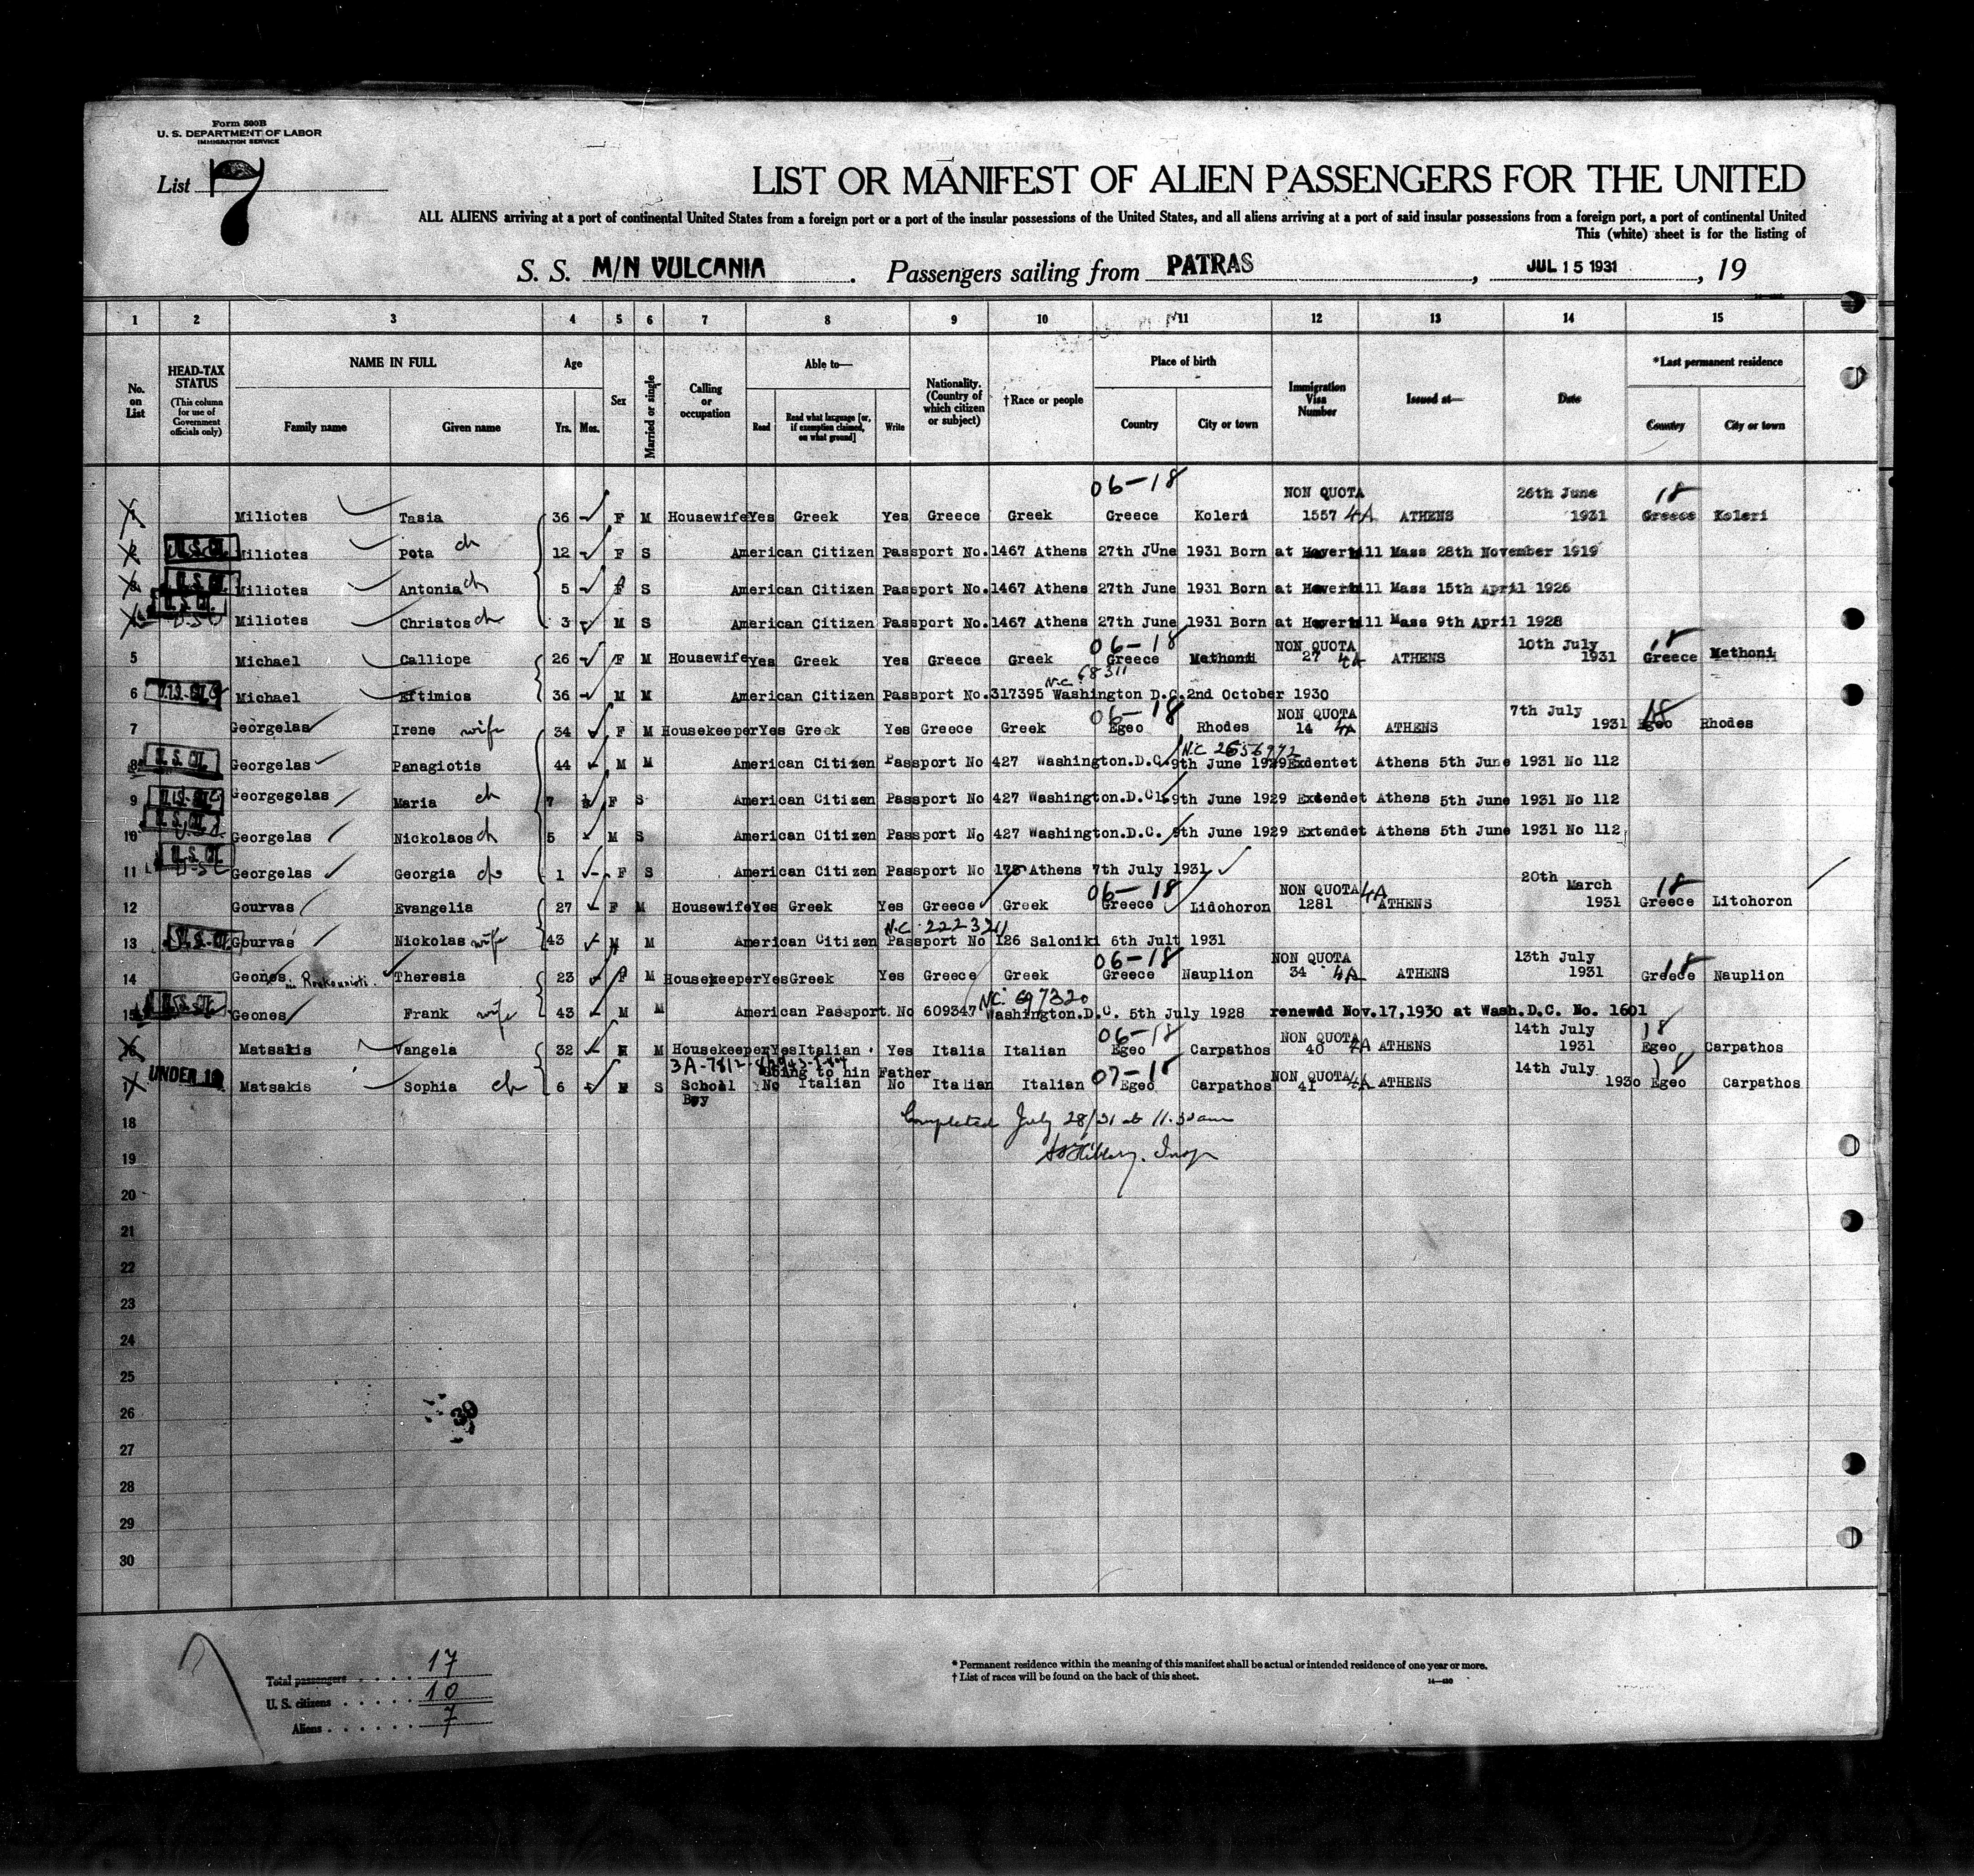 Form 500B
U. S. DEPARTMENT OF LABOR
IMMIGRATION SERVICE
List 7
LIST OR MANIFEST OF ALIEN PASSENGERS FOR THE UNITED
ALL ALIENS arriving at a port of continental United States from a foreign port or a port of the insular possessions of the United States, and all aliens arriving at a port of said insular possessions from a foreign port, a port of continental United
This (white) sheet is for the listing of
S. S. M/N VULCANIA. Passengers sailing from PATRAS, JUL 15 1931, 19
1 2 3 4 5 6 7 8 9 10 11 12 13 14 15
No. on List
HEAD-TAX STATUS (This column for use of Government officials only)
NAME IN FULL Family name Given name
Age Yrs. Mos.
Sex
Married or single
Calling or occupation
Able to— Read Read what language [or, if exemption claimed, on what ground] Write
Nationality. (Country of which citizen or subject)
†Race or people
Place of birth Country City or town
Immigration Visa Number
Issued at—
Date
*Last permanent residence Country City or town
06-18 NON QUOTA 26th June 18
Miliotes Tasia 36 F M Housewife Yes Greek Yes Greece Greek Greece Koleri 1557 4A ATHENS 1931 Greece Koleri
2 U.S.CIT. Miliotes Pota ch 12 F S American Citizen Passport No.1467 Athens 27th June 1931 Born at Haverhill Mass 28th November 1919
3 U.S.CIT. Miliotes Antonia ch 5 F S American Citizen Passport No.1467 Athens 27th June 1931 Born at Haverhill Mass 15th April 1926
4 U.S.CIT. Miliotes Christos ch 3 M S American Citizen Passport No.1467 Athens 27th June 1931 Born at Haverhill Mass 9th April 1928
06-18 NON QUOTA 10th July 18
5 Michael Calliope 26 F M Housewife Yes Greek Yes Greece Greek Greece Methoni 27 4A ATHENS 1931 Greece Methoni
N.C. 68311
6 U.S.CIT. Michael Eftimios 36 M M American Citizen Passport No.317395 Washington D.C. 2nd October 1930
06-18 NON QUOTA 7th July 18
7 Georgelas Irene wife 34 F M Housekeeper Yes Greek Yes Greece Greek Egeo Rhodes 14 4A ATHENS 1931 Egeo Rhodes
N.C 2656972
8 U.S.CIT. Georgelas Panagiotis 44 M M American Citizen Passport No 427 Washington.D.C. 9th June 1929 Exdentet Athens 5th June 1931 No 112
9 U.S.CIT. Georgegelas Maria ch 7 F S American Citizen Passport No 427 Washington.D.C. 9th June 1929 Extendet Athens 5th June 1931 No 112
10 U.S.CIT. Georgelas Nickolaos ch 5 M S American Citizen Passport No 427 Washington.D.C. 9th June 1929 Extendet Athens 5th June 1931 No 112
11 U.S.CIT. Georgelas Georgia ch 1 F S American Citizen Passport No 178 Athens 7th July 1931
06-18 NON QUOTA 4A 20th March 18
12 Gourvas Evangelia 27 F M Housewife Yes Greek Yes Greece Greek Greece Lidohoron 1281 ATHENS 1931 Greece Litohoron
N.C. 222321
13 U.S.CIT. Gourvas Nickolas wife 43 M M American Citizen Passport No 126 Saloniki 6th Jult 1931
06-18 NON QUOTA 13th July 18
14 Geones Theresia 23 F M Housekeeper Yes Greek Yes Greece Greek Greece Nauplion 34 4A ATHENS 1931 Greece Nauplion
N.C. 697320
15 U.S.CIT. Geones Frank wife 43 M M American Passport No 609347 Washington.D.C. 5th July 1928 renewed Nov.17,1930 at Wash.D.C. No. 1601
06-18 NON QUOTA 14th July 18
16 Matsakis Vangela 32 M Housekeeper Yes Italian Yes Italia Italian Egeo Carpathos 40 4A ATHENS 1931 Egeo Carpathos
UNDER 16 going to hin Father 07-18 NON QUOTA 14th July 18
17 Matsakis Sophia ch 6 S School Boy No Italian No Italian Italian Egeo Carpathos 41 4A ATHENS 1930 Egeo Carpathos
18 Completed July 28/31 at 11.30am
19
20
21
22
23
24
25
26
27
28
29
30
Total passengers 17
U. S. citizens 10
Aliens 7
* Permanent residence within the meaning of this manifest shall be actual or intended residence of one year or more.
† List of races will be found on the back of this sheet.